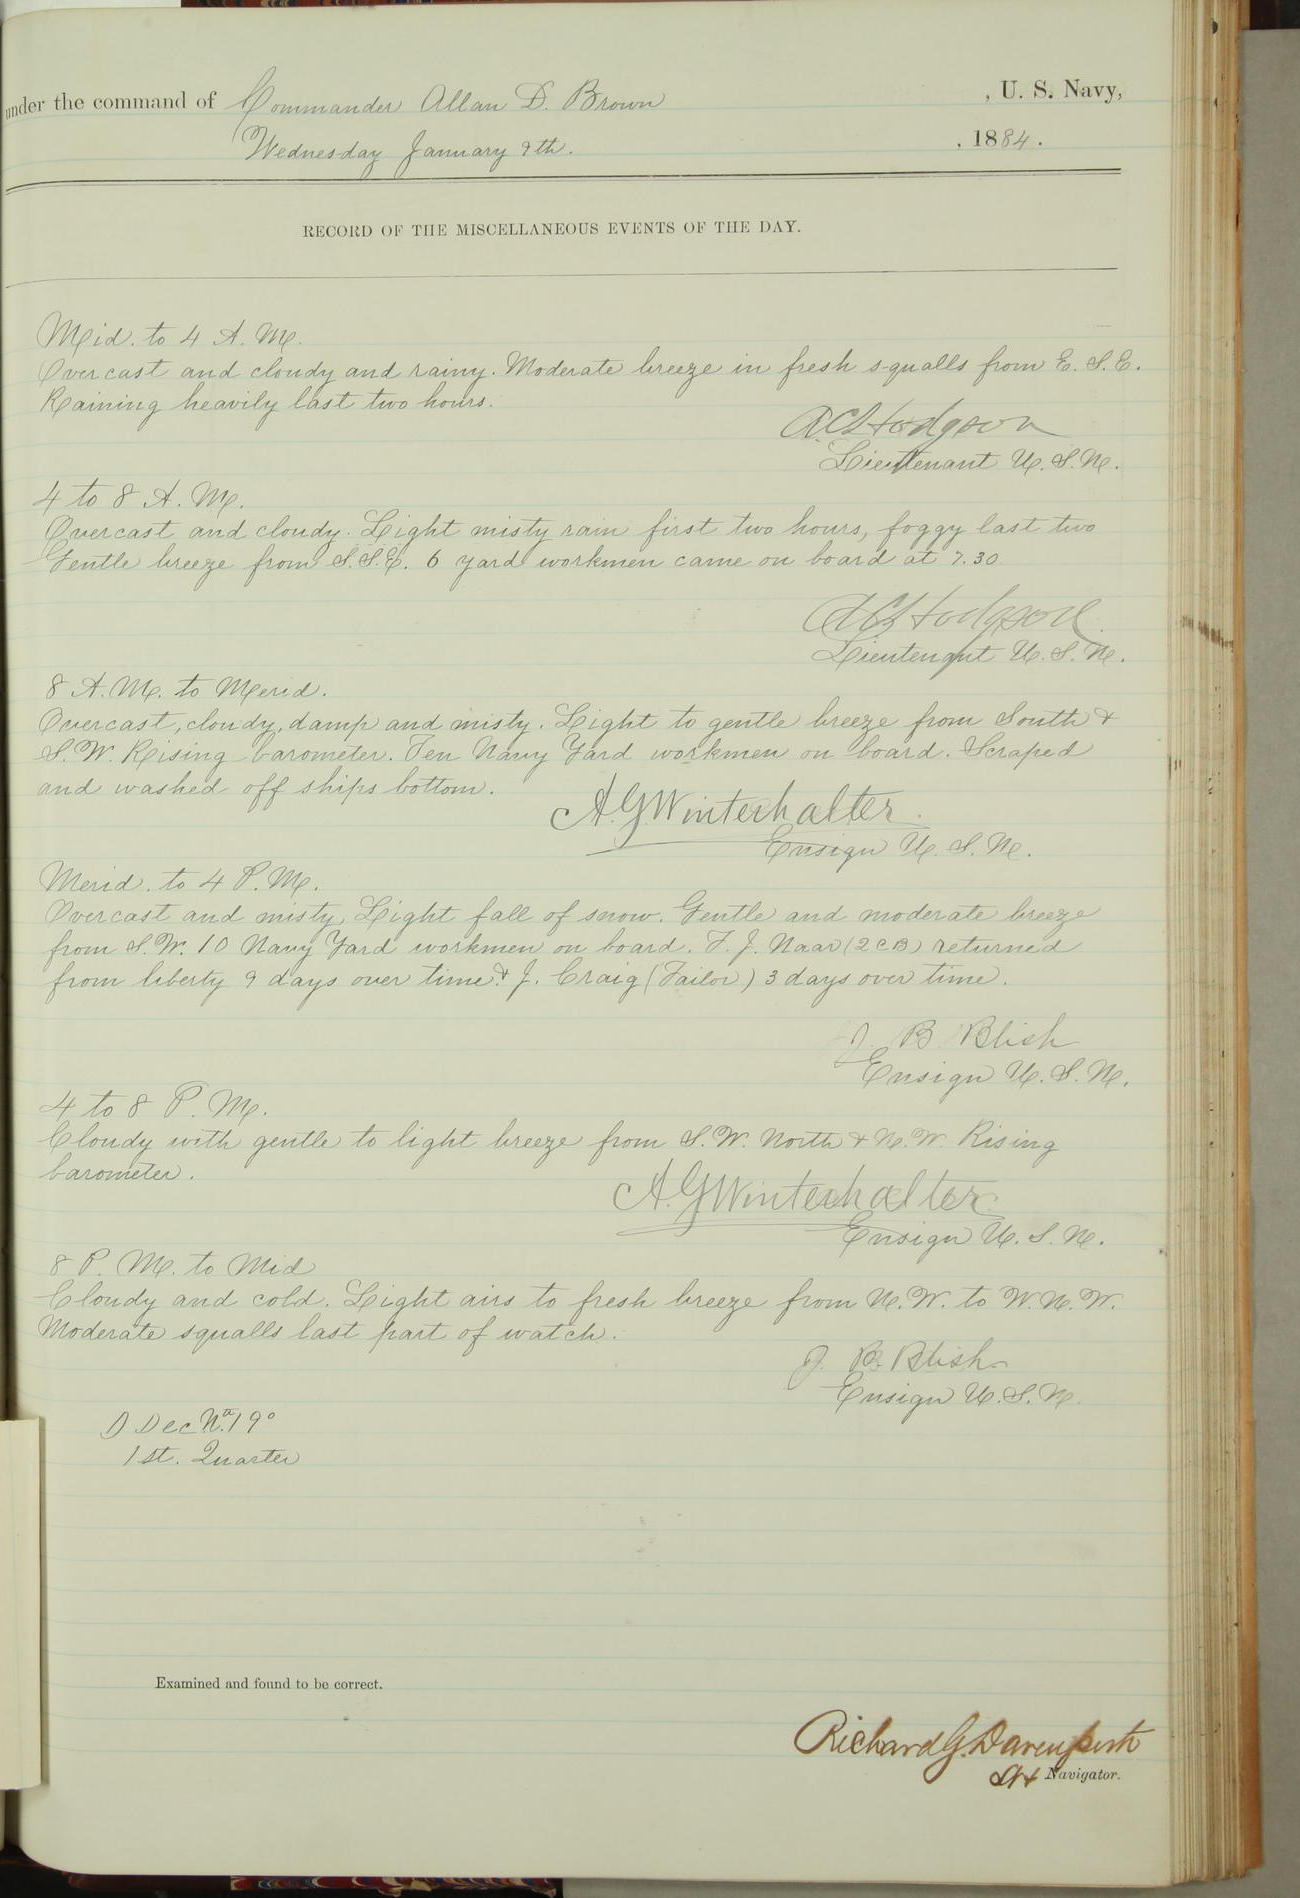 under the command of Commander Allan D. Brown , U. S. Navy,
Wednesday January 9th. , 1884.
RECORD OF THE MISCELLANEOUS EVENTS OF THE DAY.
Mid. to 4 A. M.
Overcast and cloudy and rainy. Moderate breeze in fresh squalls from E. S. E.
Raining heavily last two hours.
A.C. Hodgson
Lieutenant U. S. N.
4 to 8 A. M.
Overcast and cloudy. Light misty rain first two hours, foggy last two
Gentle breeze from S.S.E. 6 yard workmen came on board at 7.30
A C Hodgson
Lieutenant U. S. N.
8 A. M. to Merid.
Overcast, cloudy, damp and misty. Light to gentle breeze from South &
S.W. Rising barometer. Ten Navy Yard workmen on board. Scraped
and washed off ships bottom.
A. G. Winterhalter
Ensign U. S. N.
Merid. to 4 P. M.
Overcast and misty. Light fall of snow. Gentle and moderate breeze
from S.W. 10 Navy Yard workmen on board. F. J. Naar (2 C B) returned
from liberty 9 days over time & J. Craig (Tailor) 3 days over time.
J. B. Blish
Ensign U. S. N.
4 to 8 P. M.
Cloudy with gentle to light breeze from S.W. North & N.W. Rising
barometer.
A. G. Winterhalter
Ensign U. S. N.
8 P. M. to Mid
Cloudy and cold. Light airs to fresh breeze from N.W. to W.N.W.
Moderate squalls last part of watch.
J. B. Blish
Ensign U. S. N.
D Dec N. 19°
1st. Quarter
Examined and found to be correct.
Richard G. Davenport
Lt Navigator.